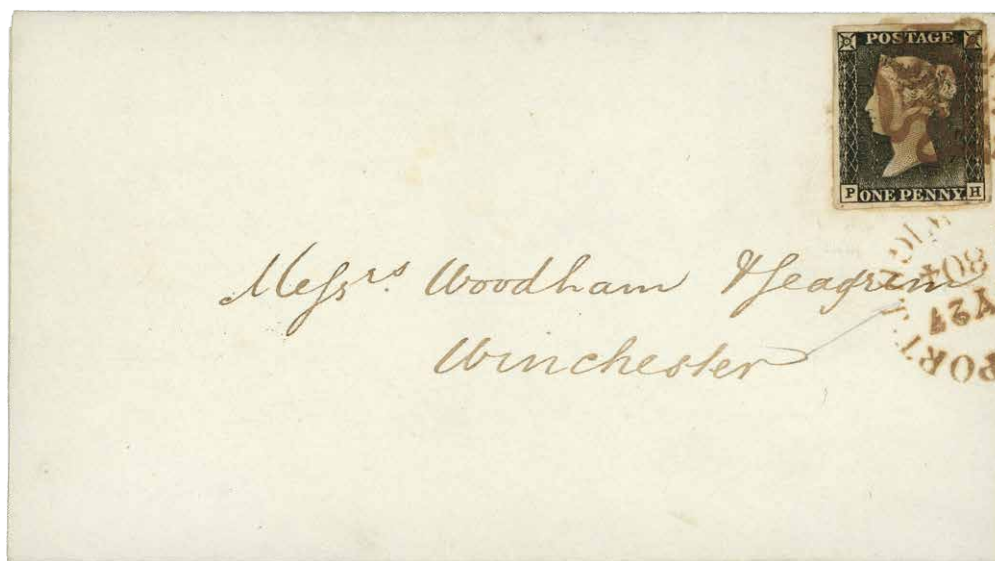 POSTAGE
P ONE PENNY H
Messrs. Woodham & Seagrim
Winchester